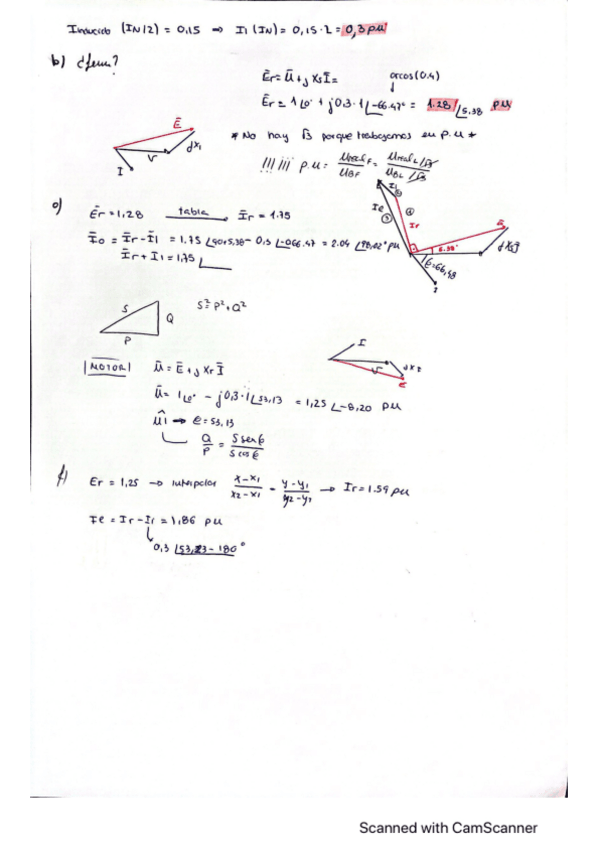 Inducido (IN/2) = 0,15 ⇒ I1 (IN) = 0,15·2 = 0,3 pu
b) ¿fem?
Ēr = Ū + j Xs Ī =
arcos(0.4)
Ēr = 1∟0° + j0.3·1∟-66.42° = 1.28∟5.38 pu
Ē
V
jX1
I
* No hay √3 porque trabajamos en p.u *
!!! !!! p.u = Ureal F / UBF = Ureal L/√3 / UBL/√3
c)
Ēr = 1,28 tabla → Īr = 1.75
Īo = Īr - Ī1 = 1.75∟90+5,38 - 0,3∟-066.47 = 2.04∟98,02° pu
Īr + I1 = 1,75∟
I1
Ie
Ir
6.38°
φ=66,48
I
S
Q
P
S² = P² + Q²
|MOTOR|
Ū = Ē + j Xr Ī
Ū = 1∟0° - j0,3·1∟53,13 = 1,25∟-8,20 pu
U1 → φ = 53,13
Q/P = S senφ / S cosφ
I
V
jX2
E
f)
Er = 1,25 → interpolar x-x1/x2-x1 = y-y1/y2-y1 → Ir = 1.59 pu
Ie = Ir - I1 = 1,86 pu
0,3∟53,13-180°
Scanned with CamScanner